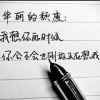 华丽的秋度：
我想你的时候
你会不会也刚好正在想我